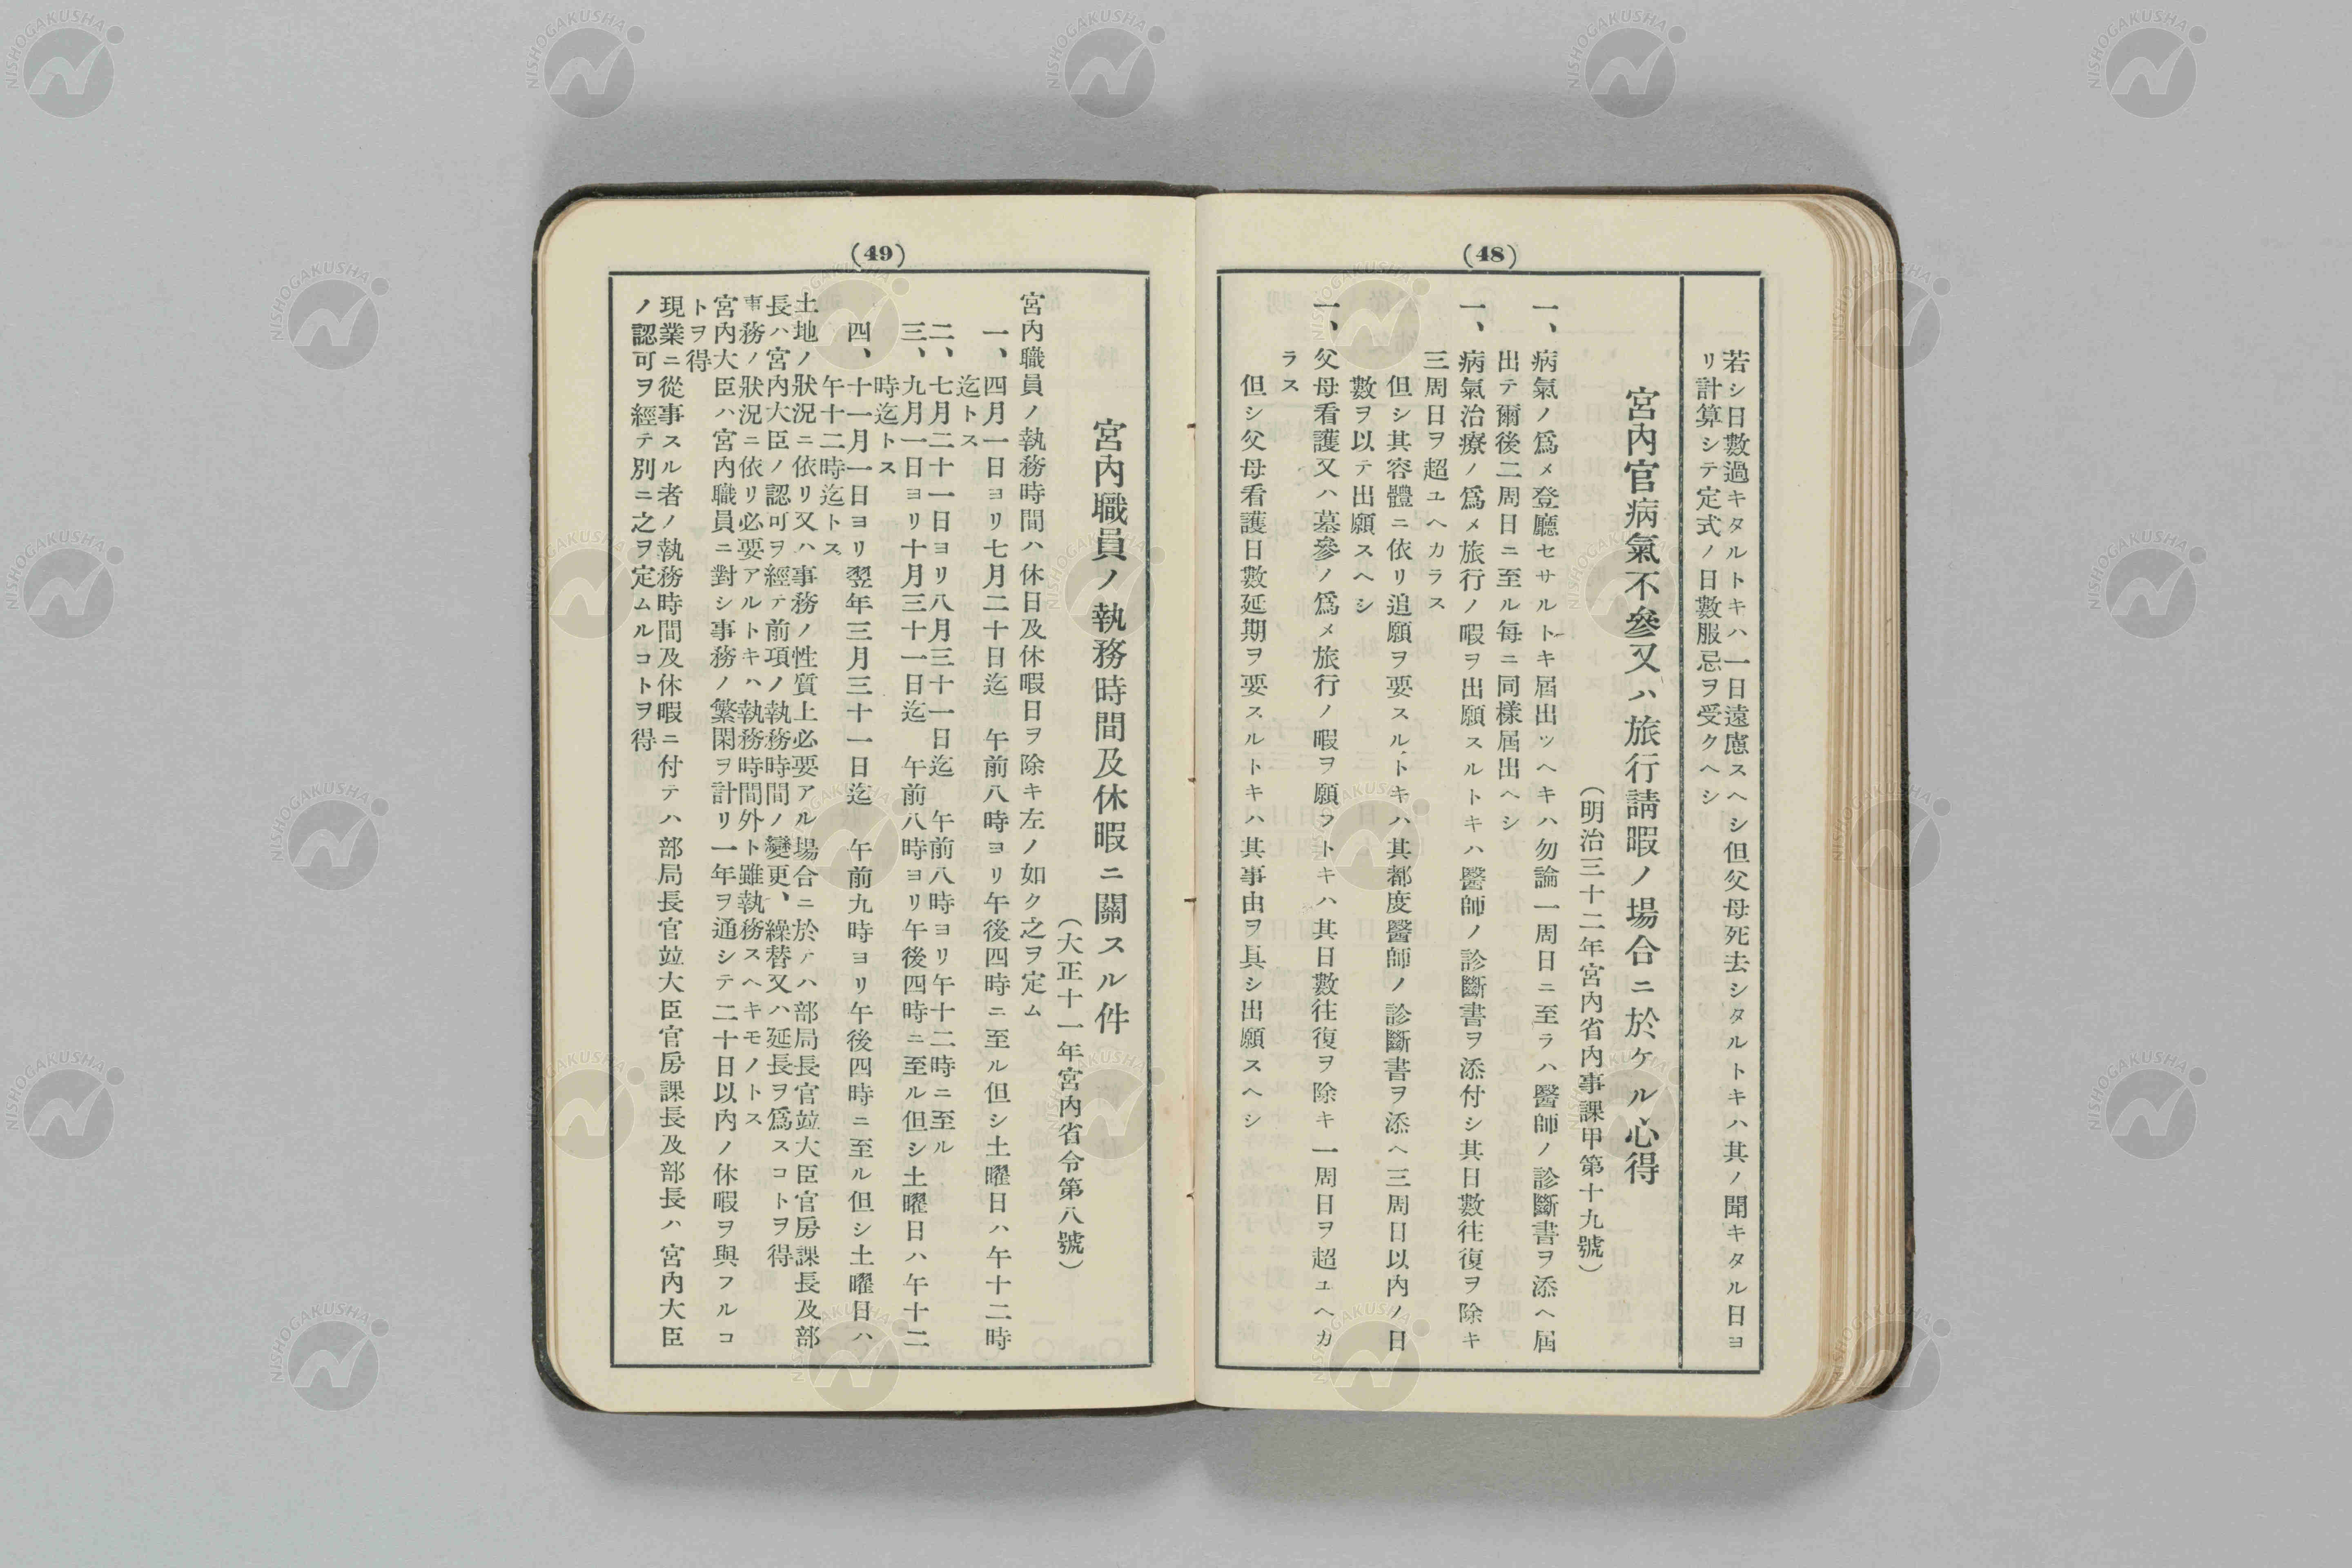 (48)
若シ日數過キタルトキハ一日遠慮スヘシ但父母死去シタルトキハ其ノ聞キタル日ヨ
リ計算シテ定式ノ日數服忌ヲ受クヘシ
宮內官病氣不參又ハ旅行請暇ノ場合ニ於ケル心得
(明治三十二年宮內省內事課甲第十九號)
一、病氣ノ爲メ登廳セサルトキ屆出ツヘキハ勿論一周日ニ至ラハ醫師ノ診斷書ヲ添ヘ屆
出テ爾後二周日ニ至ル每ニ同樣屆出ヘシ
一、病氣治療ノ爲メ旅行ノ暇ヲ出願スルトキハ醫師ノ診斷書ヲ添付シ其日數往復ヲ除キ
三周日ヲ超ユヘカラス
但シ其容體ニ依リ追願ヲ要スルトキハ其都度醫師ノ診斷書ヲ添ヘ三周日以內ノ日
數ヲ以テ出願スヘシ
一、父母看護又ハ墓參ノ爲メ旅行ノ暇ヲ願フトキハ其日數往復ヲ除キ一周日ヲ超ユヘカ
ラス
但シ父母看護日數延期ヲ要スルトキハ其事由ヲ具シ出願スヘシ
(49)
宮內職員ノ執務時間及休暇ニ關スル件
(大正十一年宮內省令第八號)
宮內職員ノ執務時間ハ休日及休暇日ヲ除キ左ノ如ク之ヲ定ム
一、四月一日ヨリ七月二十日迄 午前八時ヨリ午後四時ニ至ル但シ土曜日ハ午十二時
迄トス
二、七月二十一日ヨリ八月三十一日迄 午前八時ヨリ午十二時ニ至ル
三、九月一日ヨリ十月三十一日迄 午前八時ヨリ午後四時ニ至ル但シ土曜日ハ午十二
時迄トス
四、十一月一日ヨリ翌年三月三十一日迄 午前九時ヨリ午後四時ニ至ル但シ土曜日ハ
午十二時迄トス
土地ノ狀況ニ依リ又ハ事務ノ性質上必要アル場合ニ於テハ部局長官竝大臣官房課長及部
長ハ宮內大臣ノ認可ヲ經テ前項ノ執務時間ノ變更、繰替又ハ延長ヲ爲スコトヲ得
事務ノ狀況ニ依リ必要アルトキハ執務時間外ト雖執務スヘキモノトス
宮內大臣ハ宮內職員ニ對シ事務ノ繁閑ヲ計リ一年ヲ通シテ二十日以內ノ休暇ヲ與フルコ
トヲ得
現業ニ從事スル者ノ執務時間及休暇ニ付テハ部局長官竝大臣官房課長及部長ハ宮內大臣
ノ認可ヲ經テ別ニ之ヲ定ムルコトヲ得
NISHOGAKUSHA